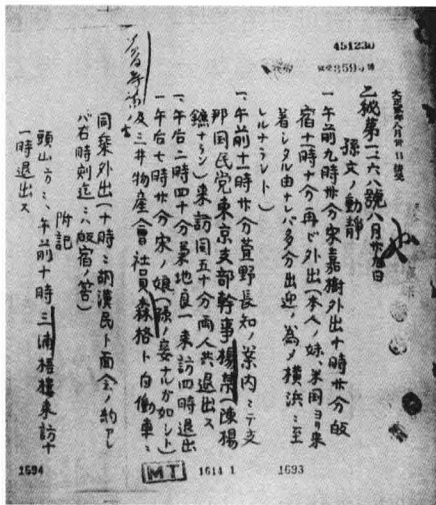 451230
大正弐年八月廿11日接受
乙秘第一二六八號八月廿九日
孫文ノ動靜
一、午前九時卅分宋嘉樹外出十時卅分皈
宿十一時十分再ビ外出本人ノ妹、米国ヨリ来
着シタル由ナレバ多分出迎ノ為メ横浜ニ至
レルナラント)
一、午前十一時卅分萱野長知ノ案内ニテ支
那国民党東京支部幹事楊 陳楊
鑣ナラン)来訪同五十分両人共退出ス
一、午后二時四十分菊地良一来訪四時退出
一、午后七時卅分宋ノ娘(孫ノ妾ナルガ如シト)
及三井物産會社員森格ト自働車ニ
同乗外出(十時ニ胡漢民ト面会ノ約アレ
バ右時刻迄ニハ皈宿ノ筈)
附記
頭山方ニハ午前十時三浦梧樓来訪十
一時退出ス
1693
1614 1
MT
1694